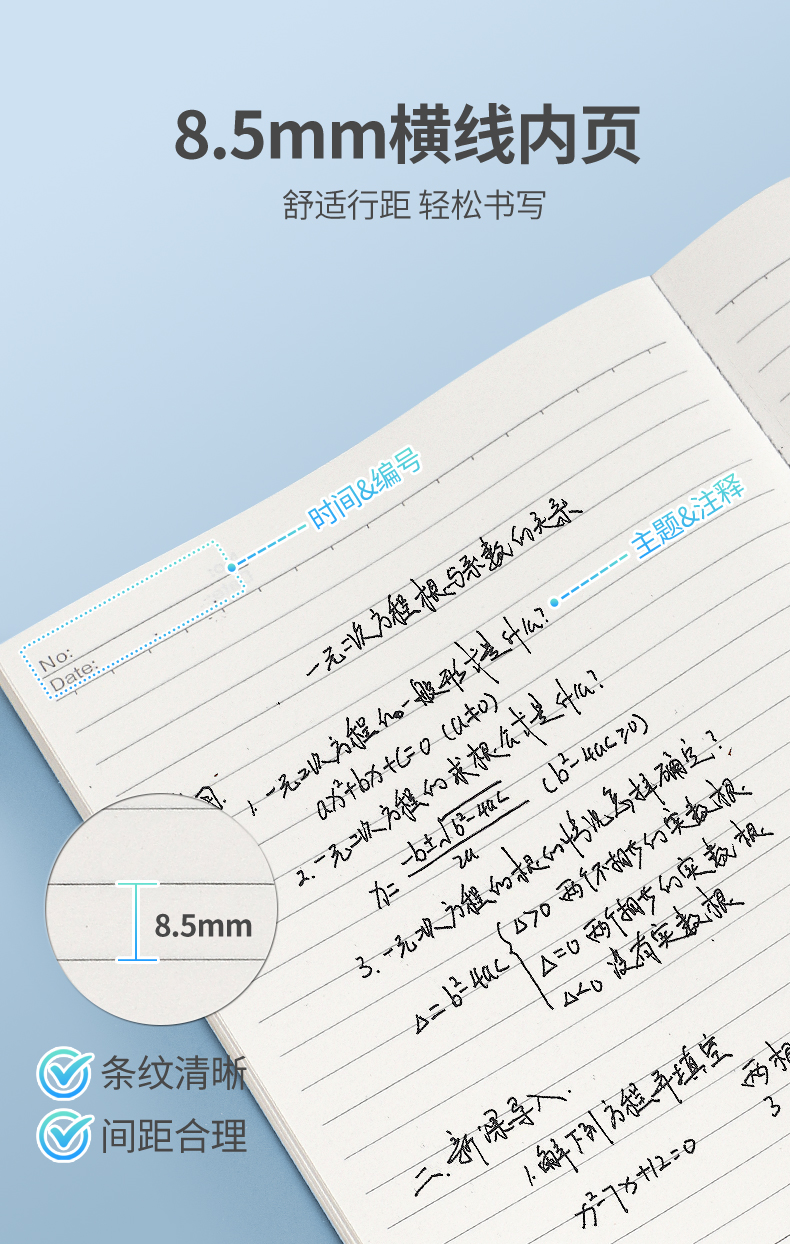 8.5mm横线内页
舒适行距 轻松书写
时间&编号
主题&注释
No:
Date:
一元二次方程根与系数的关系
1.一元二次方程的一般形式是什么?
ax²+bx+c=0 (a≠0)
2.一元二次方程的求根公式是什么?
x= -b±√b²-4ac / 2a (b²-4ac≥0)
3.一元二次方程的根的情况怎样确定?
Δ=b²-4ac { Δ>0 两个不相等的实数根
Δ=0 两个相等的实数根
Δ<0 没有实数根
二.新课导入.
1.解下列方程并填空
x²-7x+12=0
两根
3
8.5mm
条纹清晰
间距合理